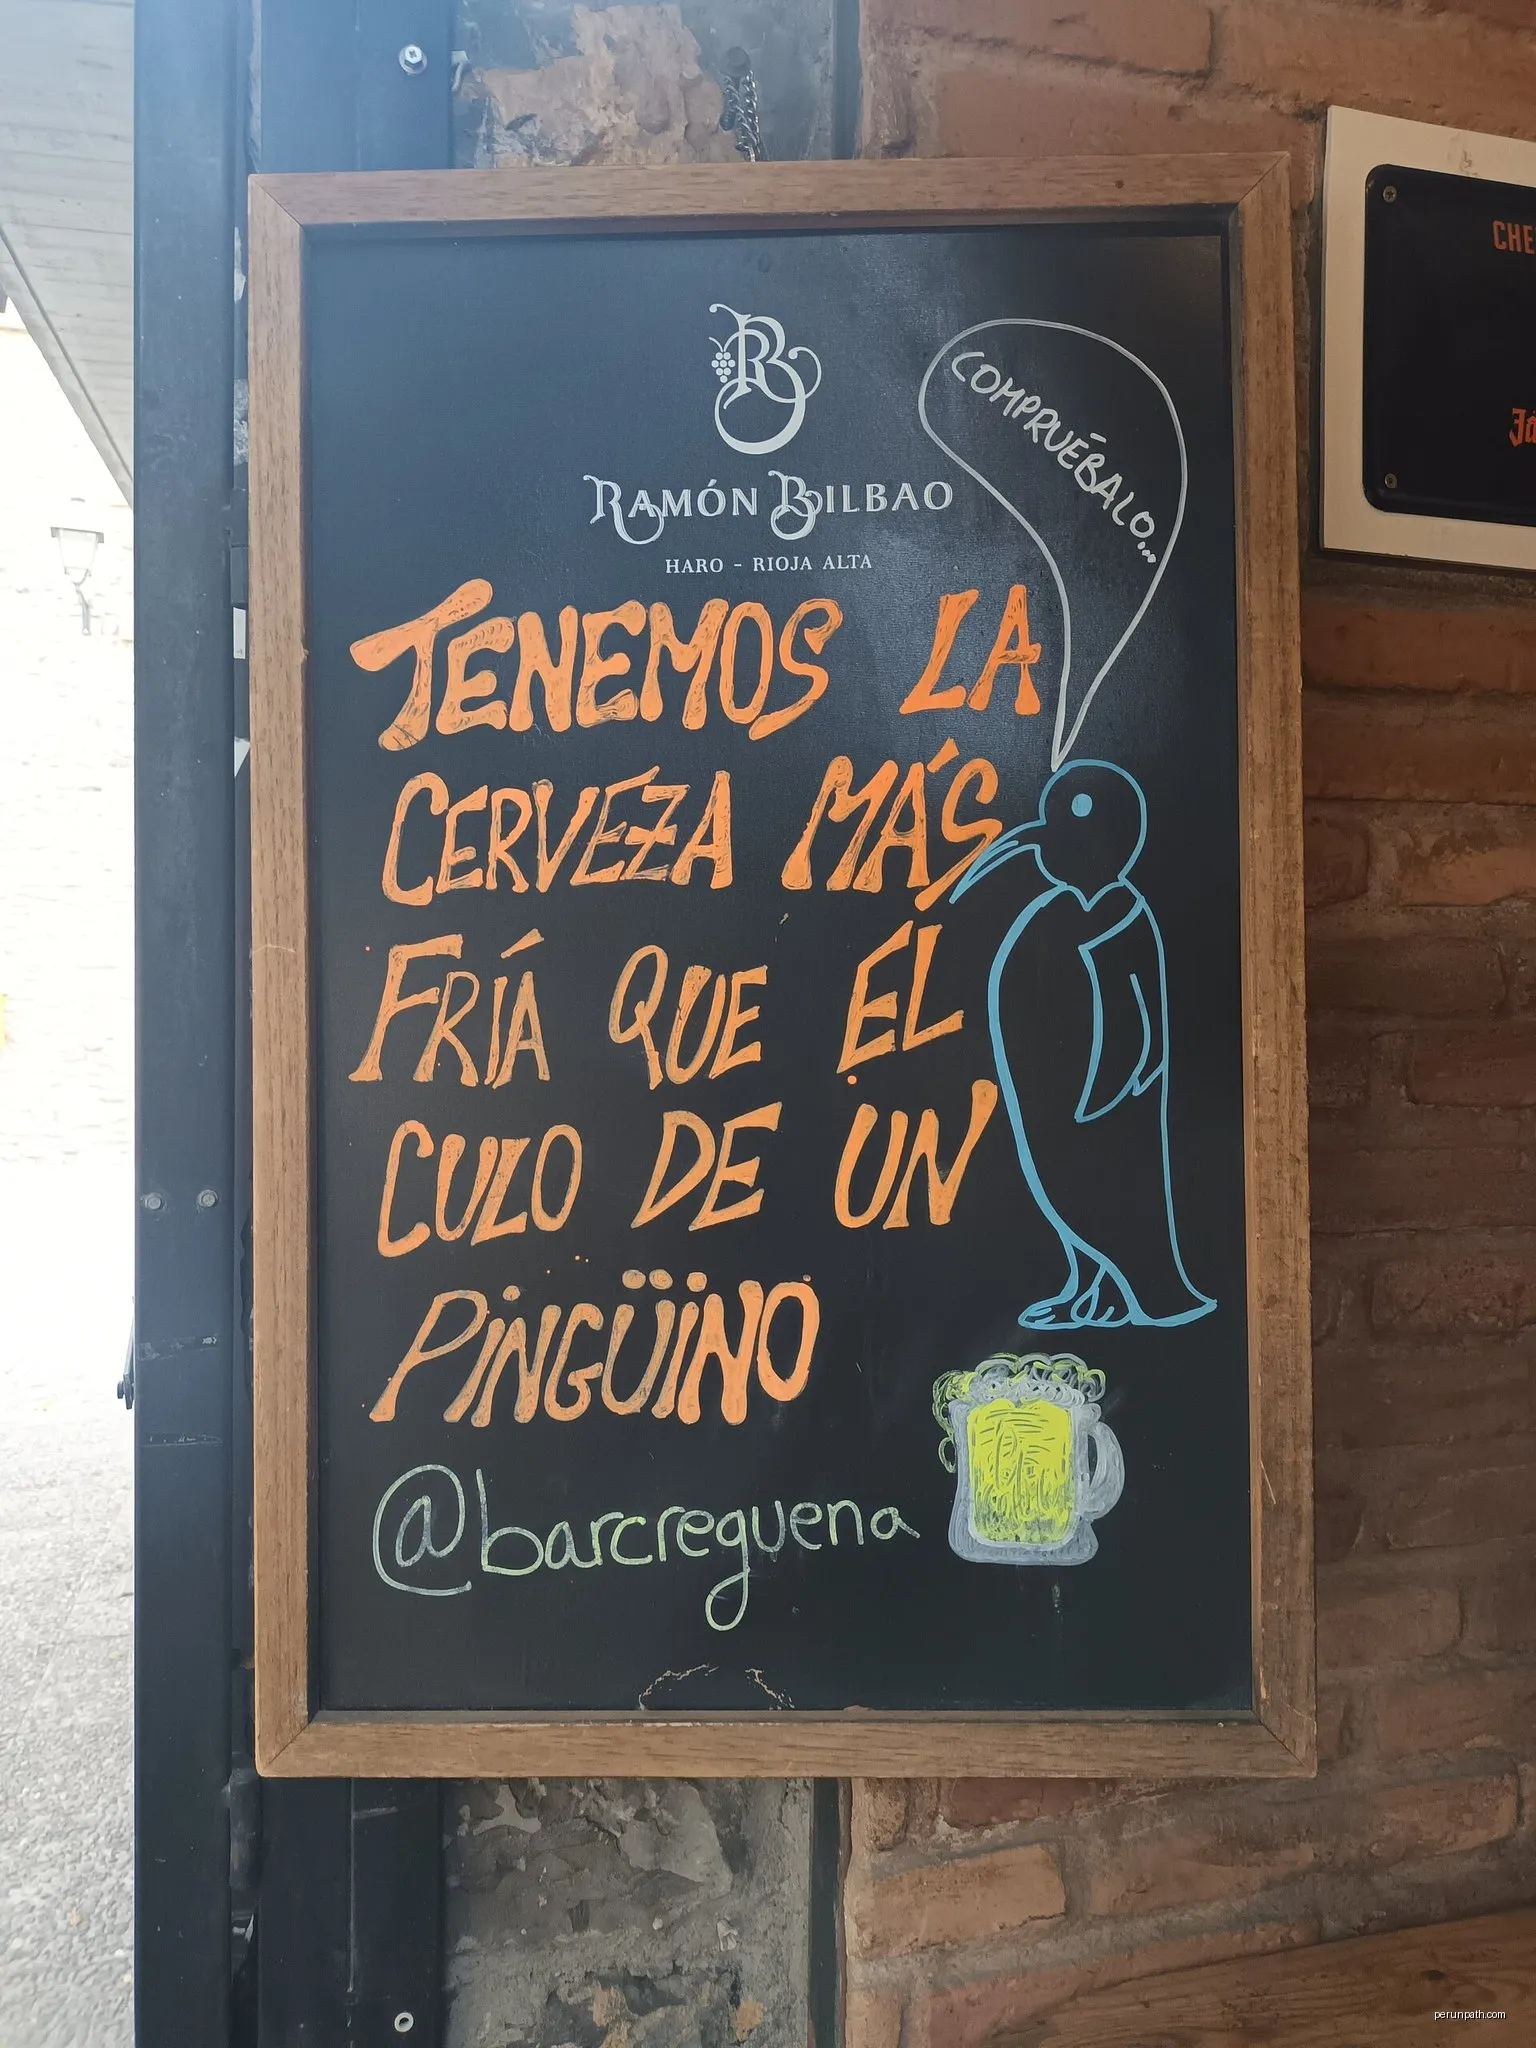 RB
RAMÓN BILBAO
HARO - RIOJA ALTA
COMPRUÉBALO...
TENEMOS LA
CERVEZA MÁS
FRÍA QUE EL
CULO DE UN
PINGÜINO
@barcreguena
CHE
Já
perunpath.com